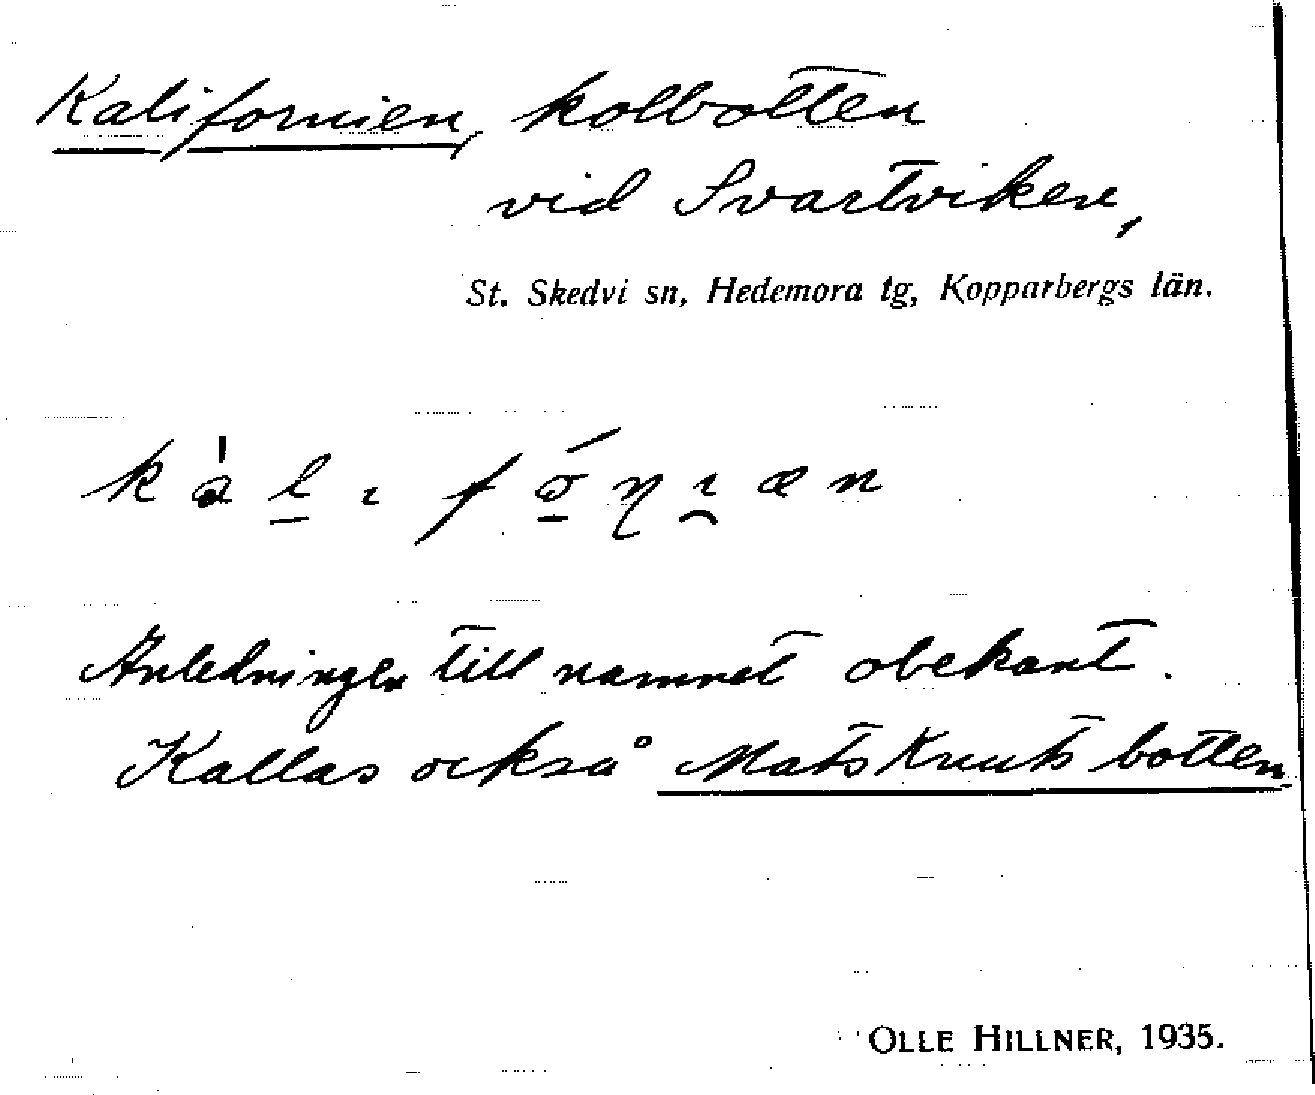 Kalifornien, kolbotten
vid Svartviken,
St. Skedvi sn, Hedemora tg, Kopparbergs län.
Anledningen till namnet obekant.
Kallas också Mats Knuts botten.
OLLE HILLNER, 1935.